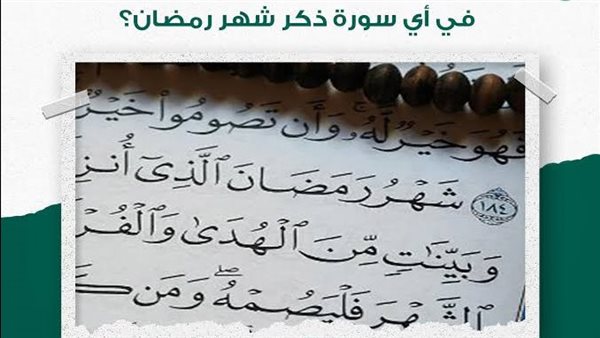 في أي سورة ذكر شهر رمضان؟
فَهُوَ خَيْرٌ لَّهُۥ ۚ وَأَن تَصُومُوا۟ خَيْرٌ
١٨٤ شَهْرُ رَمَضَانَ ٱلَّذِىٓ أُنزِ
وَبَيِّنَـٰتٍ مِّنَ ٱلْهُدَىٰ وَٱلْفُرْ
ٱلشَّهْرَ فَلْيَصُمْهُ ۖ وَمَن كَـ